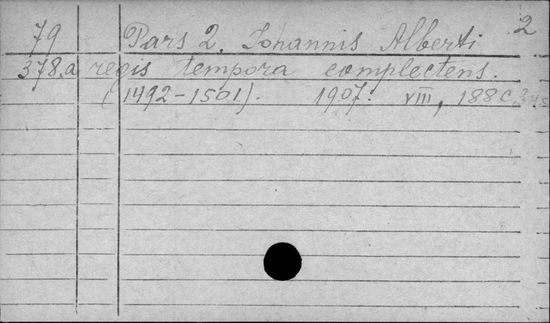 2
79 Pars 2. Iohannis Alberti
378.a regis tempora complectens.
(1492-1501). 1907. VIII, 188 c.